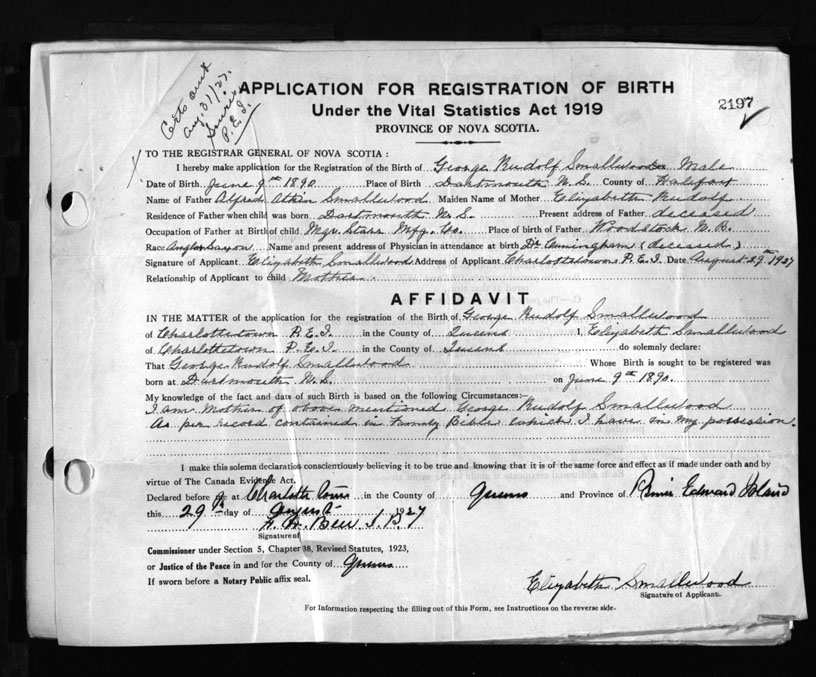 Certs sent
Aug. 31/27.
Souris
P.E.I.
APPLICATION FOR REGISTRATION OF BIRTH
Under the Vital Statistics Act 1919
2197
PROVINCE OF NOVA SCOTIA.
TO THE REGISTRAR GENERAL OF NOVA SCOTIA :
I hereby make application for the Registration of the Birth of George Rudolf Smallwood Male
Date of Birth June 9th 1890 Place of Birth Dartmouth N.S. County of Halifax
Name of Father Alfred Atkin Smallwood Maiden Name of Mother Elizabeth Rudolf
Residence of Father when child was born Dartmouth N.S. Present address of Father deceased
Occupation of Father at Birth of child Mgr. Starr Mfg. Co. Place of birth of Father Woodstock N.B.
Race Anglo Saxon Name and present address of Physician in attendance at birth Dr. Cunningham (deceased)
Signature of Applicant Elizabeth Smallwood Address of Applicant Charlottetown P.E.I. Date August 29th 1927
Relationship of Applicant to child Mother
AFFIDAVIT
IN THE MATTER of the application for the registration of the Birth of George Rudolf Smallwood
of Charlottetown P.E.I. in the County of Queens I, Elizabeth Smallwood
of Charlottetown P.E.I. in the County of Queens do solemnly declare:
That George Rudolf Smallwood Whose Birth is sought to be registered was
born at Dartmouth N.S. on June 9th 1890.
My knowledge of the fact and date of such Birth is based on the following Circumstances:-
I am Mother of above mentioned George Rudolf Smallwood
As per record contained in Family Bible which I have in my possession.
I make this solemn declaration conscientiously believing it to be true and knowing that it is of the same force and effect as if made under oath and by
virtue of The Canada Evidence Act.
Declared before me at Charlottetown in the County of Queens and Province of Prince Edward Island
this 29th day of August 1927
Signature of
Commissioner under Section 5, Chapter 38, Revised Statutes, 1923,
or Justice of the Peace in and for the County of Queens
If sworn before a Notary Public affix seal.
Elizabeth Smallwood
Signature of Applicant.
For Information respecting the filling out of this Form, see Instructions on the reverse side.